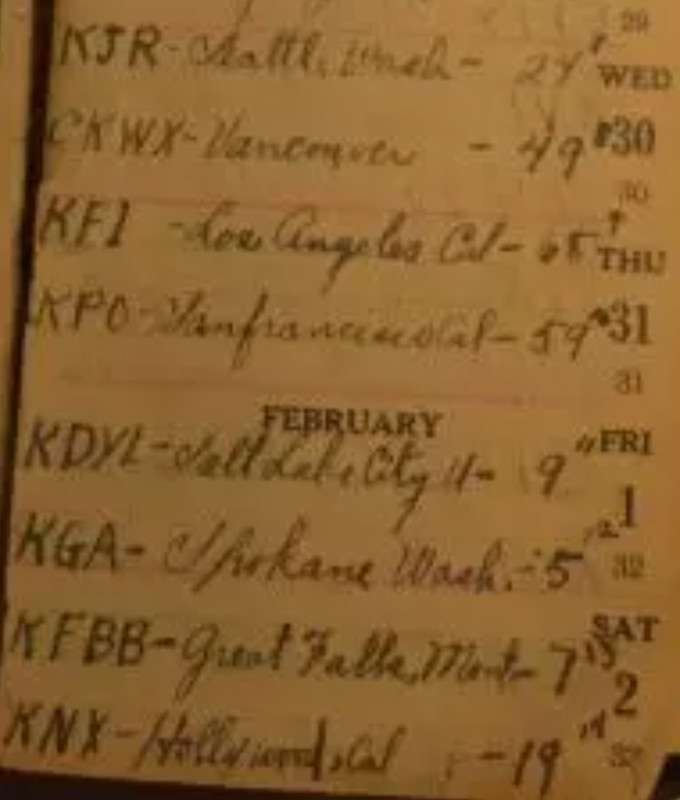 29
KJR- Seattle, Wash- 24
WED
CKWX- Vancouver - 49
30
30
KFI - Los Angeles Cal-
THU
KPO- Sanfrancisco Cal- 59
31
31
FEBRUARY
KDYL- Salt Lake City U- 9 11 FRI
1
KGA- Spokane Wash.- 5 12
32
SAT
KFBB- Great Falls, Mont- 7 13
2
KNX- Hollywood, Cal - 19 14